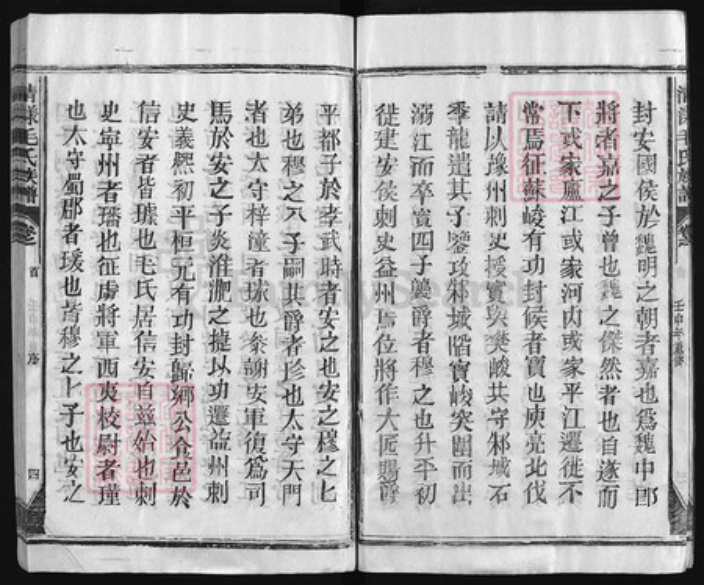 封安國侯於魏明之朝者嘉也爲魏中郎
將者嘉之子曾也魏之傑然者也自遂而
下或家廬江或家河內或家平江遷徙不
常焉征蘇峻有功封候者寶也庾亮北伐
請以豫州刺史授寶與樊峻共守邾城石
季龍遣其子鑒攻邾城陷寶峻突圍而出
溺江而卒寶四子襲爵者穆之也升平初
徙建安侯刺史益州焉位將作大匠賜爵
平都子於孝武時者安之也安之穆之匕
弟也穆之六子嗣其爵者珍也太守天門
者也太守梓潼者球也叅翰安軍復爲司
馬於安之子炎淮淝之捷以功遷益州刺
史義熙初平桓元有功封歸鄉公食邑於
信安者皆璩也毛氏居信安自兹始也刺
史寧州者璠也征虜將軍西夷校尉者瑾
也太守蜀郡者瑗也皆穆之匕子也安之
清漾毛氏族譜
卷
首
序
四